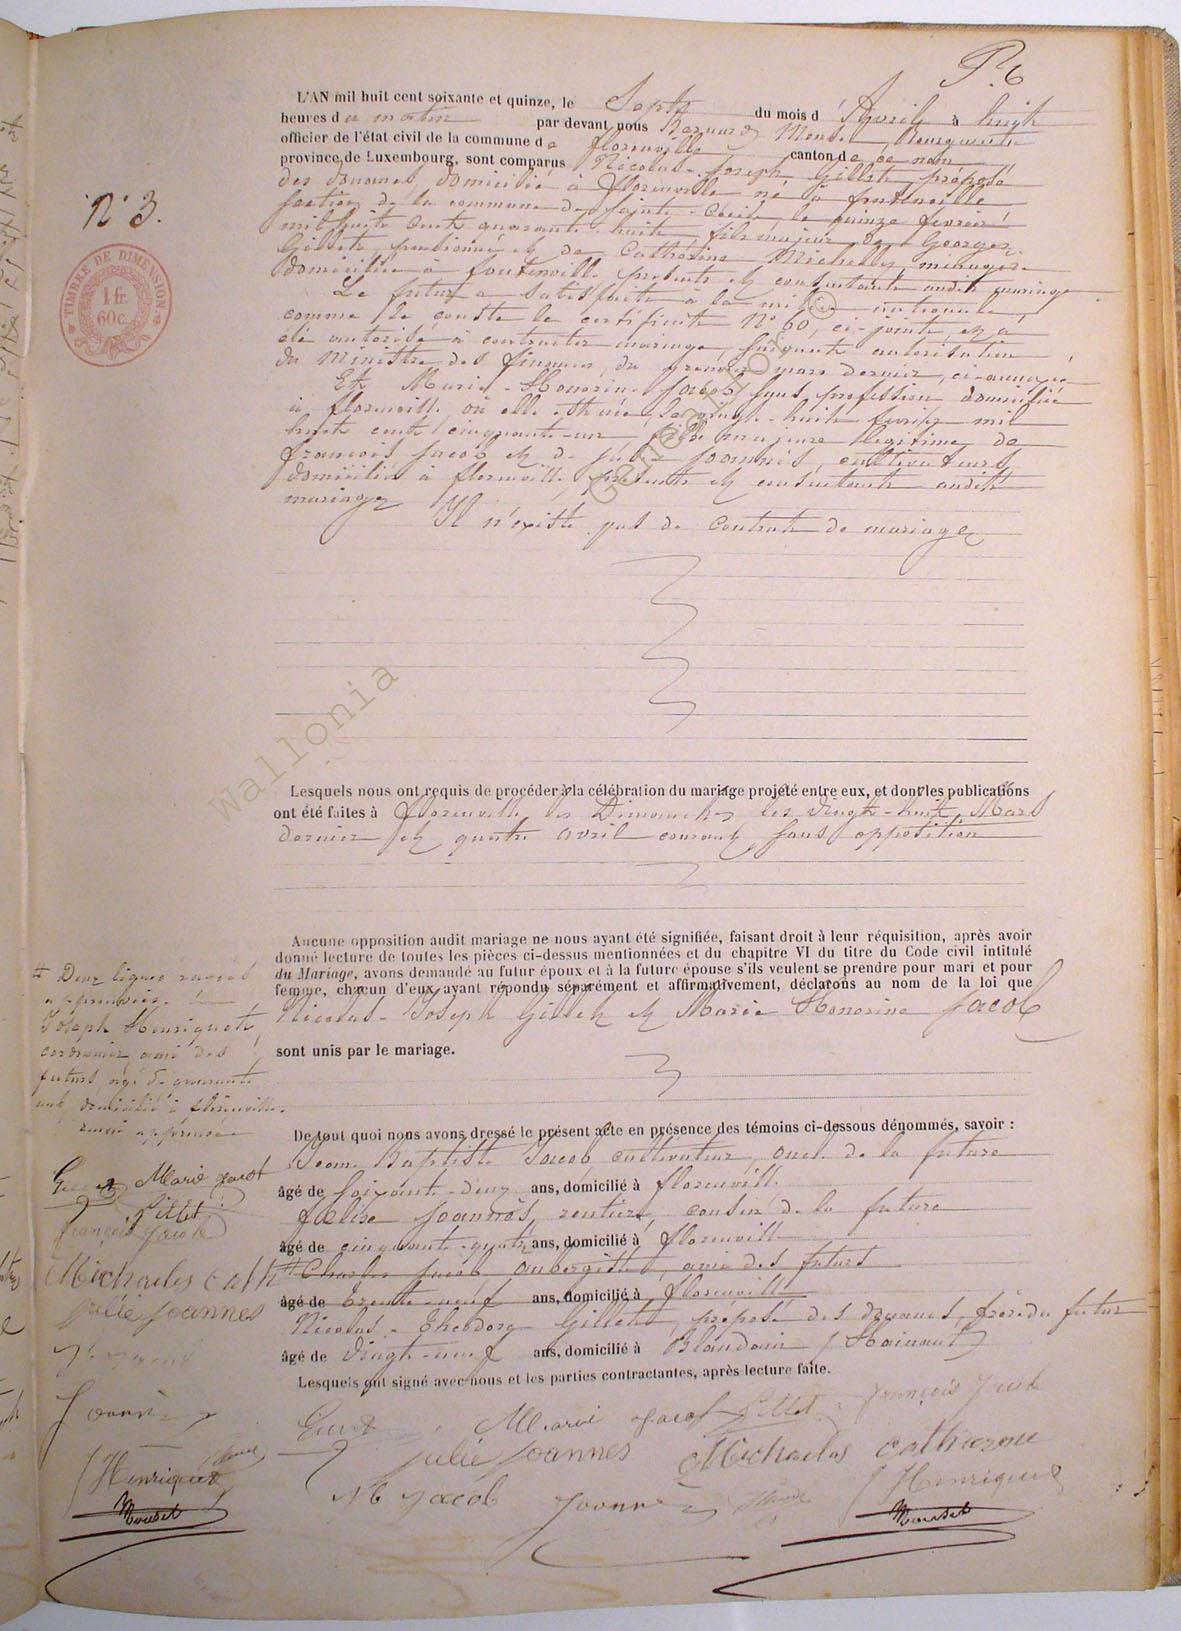 P. 6
L'AN mil huit cent soixante et quinze, le Sept du mois d'Avril à huit
heures du matin par devant nous Bernard Mousel, Bourgmestre
officier de l'état civil de la commune de florenville canton de ce nom
province de Luxembourg, sont comparus Nicolas-Joseph Gillet, préposé
des douanes, domicilié à florenville né à fontenoille
section de la commune de Sainte-Cécile, le quinze février
mil huit cent quarante-huit, fils majeur de Georges
Gillet, pensionné et de Cathérine Michaely, ménagère
domiciliés à fontenoille présents et consentants audit mariage
Le futur a satisfait à la milice nationale,
comme le constte le certificat N° 60, ci-joint, et a
été autorisé à contracter mariage, suivant autorisation
du Ministre des finances, du premier mars dernier, ci-annexée
Et Marie-Honorine Jacob, sans profession domiciliée
à florenville, où elle est née, le vingt-huit février mil
huit cent cinquante-un, fille majeure légitime de
françois Jacob et de Julie Joannès, cultivateurs,
domiciliés à florenville, présents et consentants audit
mariage
Il n'existe pas de contrat de mariage
N° 3.
TIMBRE DE DIMENSION
1 fr.
60 c.
Wallonia
Lesquels nous ont requis de procéder à la célébration du mariage projeté entre eux, et dont les publications
ont été faites à florenville les Dimanches les vingt-huit Mars
dernier et quatre avril courant, sans opposition
Aucune opposition audit mariage ne nous ayant été signifiée, faisant droit à leur réquisition, après avoir
donné lecture de toutes les pièces ci-dessus mentionnées et du chapitre VI du titre du Code civil intitulé
du Mariage, avons demandé au futur époux et à la future épouse s'ils veulent se prendre pour mari et pour
femme, chacun d'eux ayant répondu séparément et affirmativement, déclarons au nom de la loi que
Nicolas-Joseph Gillet et Marie Honorine Jacob
sont unis par le mariage.
De tout quoi nous avons dressé le présent acte en présence des témoins ci-dessous dénommés, savoir :
Jean Baptiste Jacob, cultivateur, oncle de la future
âgé de soixante-deux ans, domicilié à florenville
Joannès, rentier, cousin de la future
âgé de cinquante-quatre ans, domicilié à florenville
# Charles Jacob aubergiste, ami des futurs
âgé de trente-neuf ans, domicilié à florenville
Nicolas-Théodore Gillet, préposé des douanes, frère du futur
âgé de vingt-neuf ans, domicilié à Blandain (Hainaut)
Lesquels ont signé avec nous et les parties contractantes, après lecture faite.
# Deux lignes rayées
approuvées
Joseph Henriquet,
cordonnier, ami des
futurs, âgé de quarante
domicilié à florenville
renvoi approuvé
Gillet Marie Jacob
Gillet
François Jacob
Michaelis Cath
Julie Joannes
Joannès
J Henriquet
Mousel
Gillet Marie Jacob Gillet françois Jacob
Julie Joannes Michaelis Catherine
JB Jacob Joannès J Henriquet
Mousel